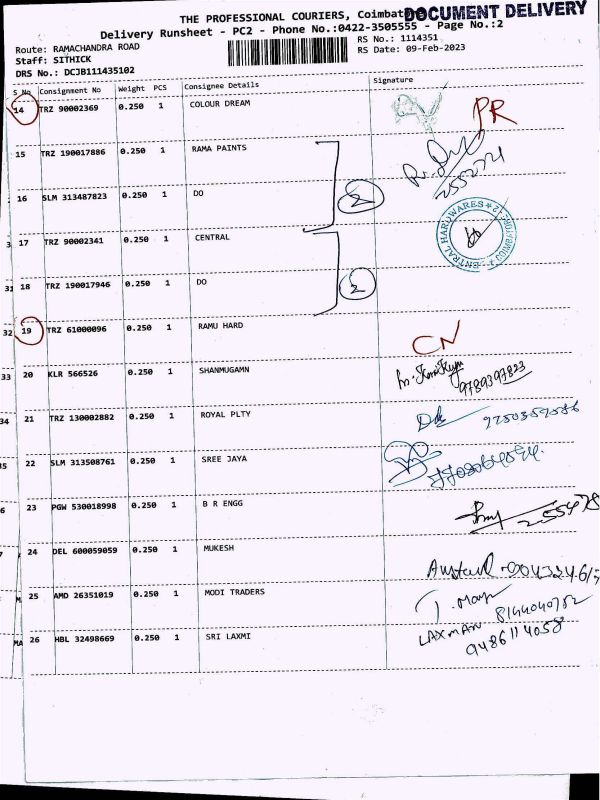 THE PROFESSIONAL COURIERS, Coimbato
DOCUMENT DELIVERY
Delivery Runsheet - PC2 - Phone No.:0422-3505555 - Page No.:2
Route: RAMACHANDRA ROAD
RS No.: 1114351
Staff: SITHICK
RS Date: 09-Feb-2023
DRS No.: DCJB111435102
S No Consignment No Weight PCS Consignee Details Signature
14 TRZ 90002369 0.250 1 COLOUR DREAM PR
15 TRZ 190017886 0.250 1 RAMA PAINTS
2
16 SLM 313487823 0.250 1 DO
3 17 TRZ 90002341 0.250 1 CENTRAL
2
31 18 TRZ 190017946 0.250 1 DO
32 19 TRZ 61000096 0.250 1 RAMU HARD CN
33 20 KLR 566526 0.250 1 SHANMUGAMN 9789397823
34 21 TRZ 130002882 0.250 1 ROYAL PLTY
35 22 SLM 313508761 0.250 1 SREE JAYA
6 23 PGW 530018998 0.250 1 B R ENGG
24 DEL 600059059 0.250 1 MUKESH
M 25 AMD 26351019 0.250 1 MODI TRADERS 8144040782
MA 26 HBL 32498669 0.250 1 SRI LAXMI LAXMAN
9486114058